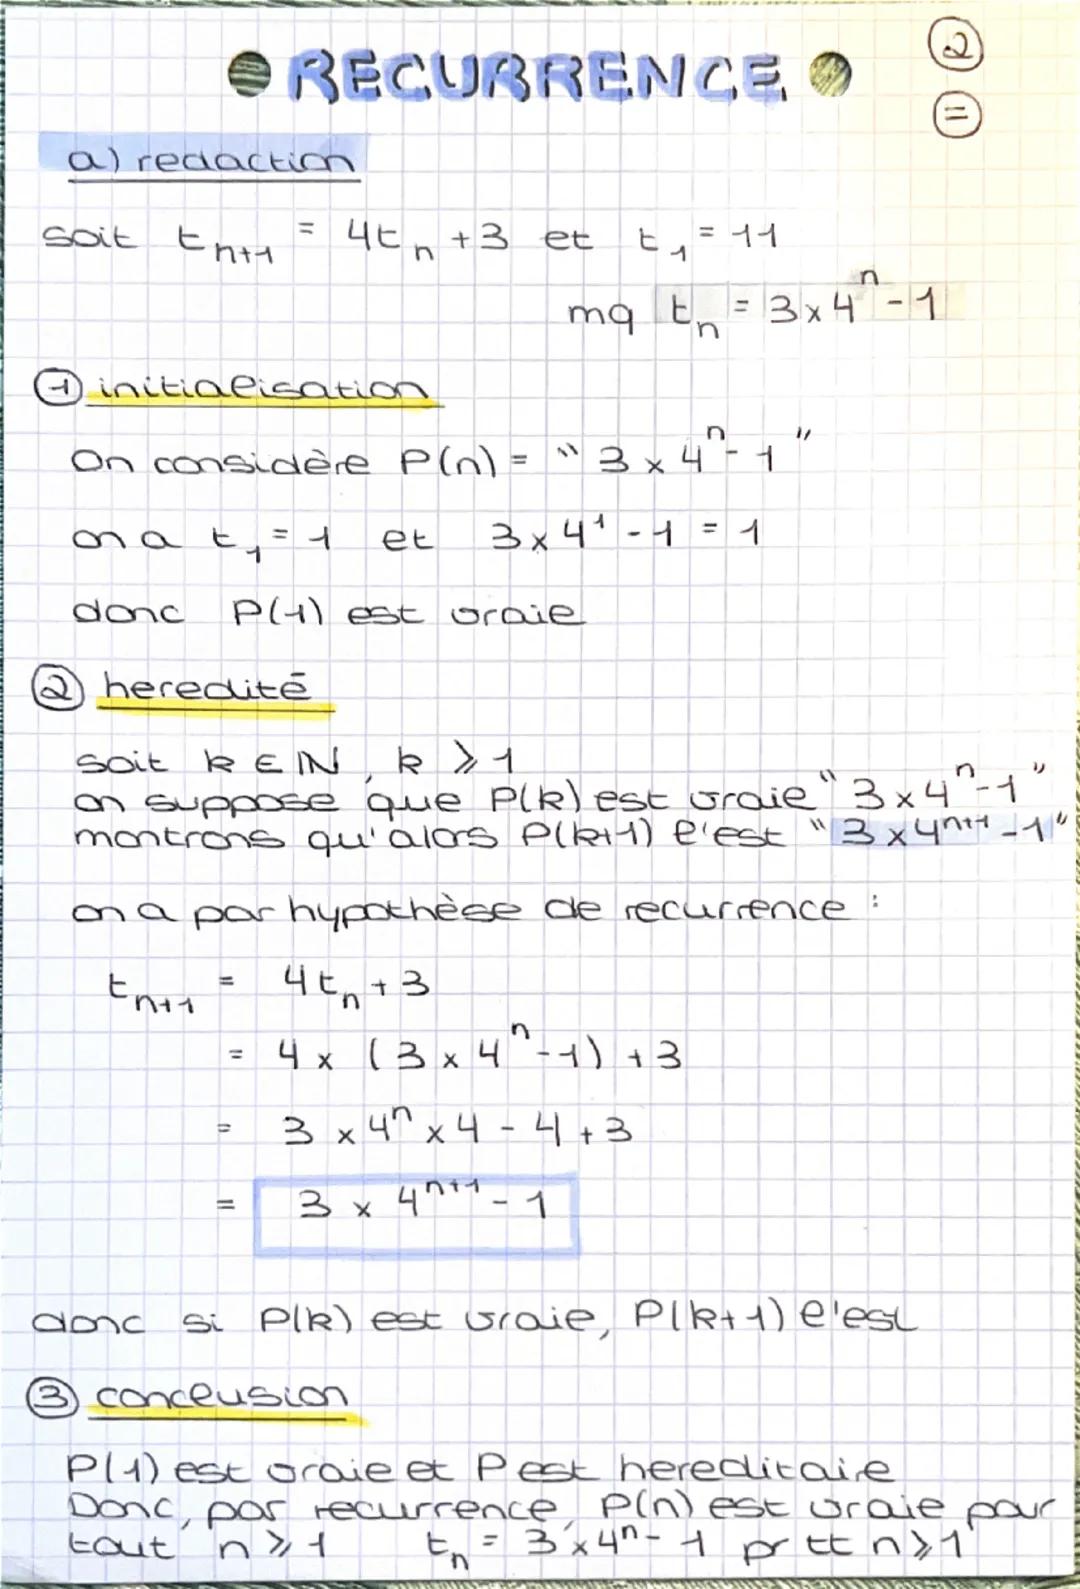 RECURRENCE
2
=
a) redaction
soit t_{n+1} = 4t_n + 3 et t_1 = 11
mq t_n = 3 x 4^n - 1
① initialisation
On considère P(n) = "3 x 4^n - 1"
on a t_1 = 1 et 3 x 4^1 - 1 = 1
donc P(1) est vraie
② heredité
soit k ∈ ℕ, k ⩾ 1
on suppose que P(k) est vraie "3 x 4^n - 1"
montrons qu'alors P(k+1) l'est "3 x 4^{n+1} - 1"
on a par hypothèse de recurrence :
t_{n+1} = 4t_n + 3
= 4 x (3 x 4^n - 1) + 3
= 3 x 4^n x 4 - 4 + 3
= 3 x 4^{n+1} - 1
donc si P(k) est vraie, P(k+1) l'est
③ conclusion
P(1) est vraie et P est hereditaire
Donc, par recurrence, P(n) est vraie pour
tout n ⩾ 1 t_n = 3 x 4^n - 1 pr tt n ⩾ 1